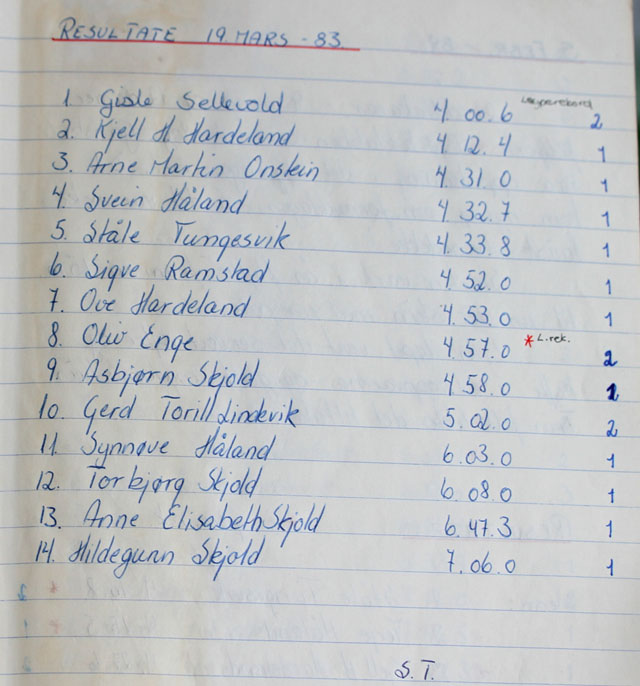 RESULTATE 19 MARS - 83
1. Gisle Sellevold 4 00.6 Løyperekord 2
2. Kjell H. Hardeland 4 12.4 1
3. Arne Martin Onstein 4 31.0 1
4. Svein Håland 4 32.7 1
5. Ståle Tungesvik 4 33.8 1
6. Sigve Ramstad 4 52.0 1
7. Ove Hardeland 4. 53.0 1
8. Oliv Enge 4 57.0 * L.rek. 2
9. Asbjørn Skjold 4 58.0 1
10. Gerd Torill Lindevik 5.02.0 2
11. Synnøve Håland 6.03.0 1
12. Torbjørg Skjold 6 08.0 1
13. Anne Elisabeth Skjold 6.47.3 1
14. Hildegunn Skjold 7.06.0 1
S.T.